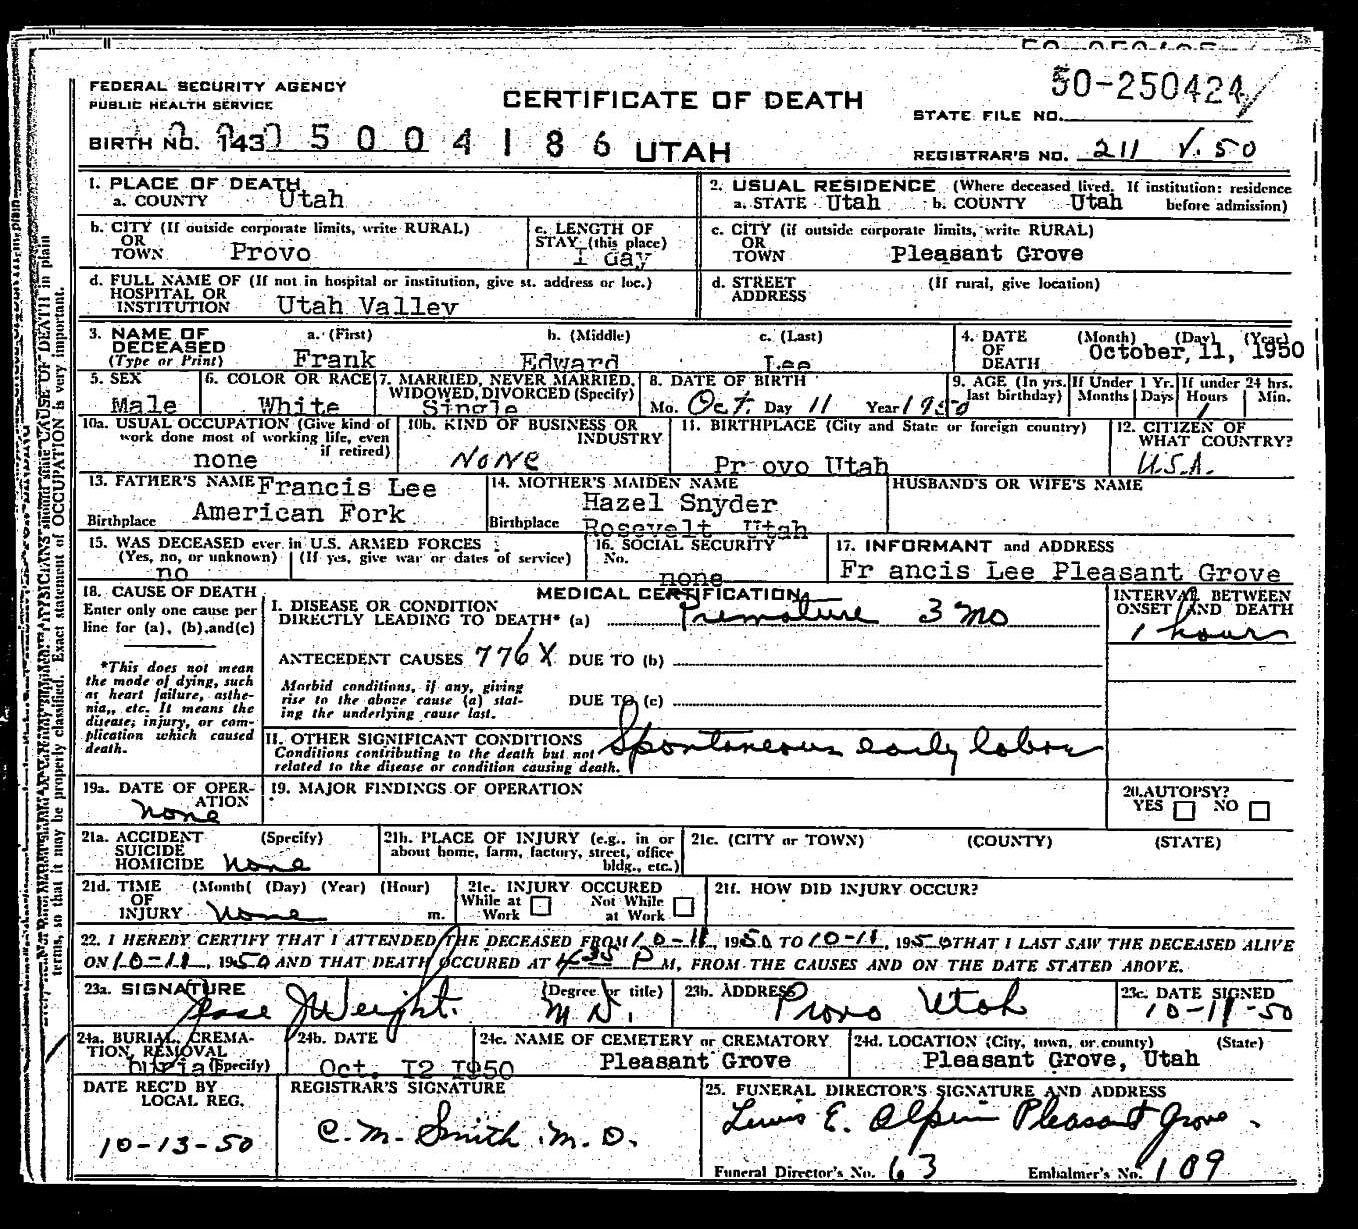 50-250424
FEDERAL SECURITY AGENCY
PUBLIC HEALTH SERVICE
CERTIFICATE OF DEATH
STATE FILE NO.
BIRTH NO. 143 5004186 UTAH
REGISTRAR'S NO. 211 V.50
1. PLACE OF DEATH
a. COUNTY Utah
2. USUAL RESIDENCE (Where deceased lived. If institution: residence before admission)
a. STATE Utah b. COUNTY Utah
b. CITY (If outside corporate limits, write RURAL)
OR
TOWN Provo
c. LENGTH OF
STAY (this place)
1 day
c. CITY (if outside corporate limits, write RURAL)
OR
TOWN Pleasant Grove
d. FULL NAME OF (If not in hospital or institution, give st. address or loc.)
HOSPITAL OR
INSTITUTION Utah Valley
d. STREET (If rural, give location)
ADDRESS
3. NAME OF DECEASED (Type or Print)
a. (First) b. (Middle) c. (Last)
Frank Edward Lee
4. DATE OF DEATH (Month) (Day) (Year)
October, 11, 1950
5. SEX
Male
6. COLOR OR RACE
White
7. MARRIED, NEVER MARRIED,
WIDOWED, DIVORCED (Specify)
Single
8. DATE OF BIRTH
Mo. Oct. Day 11 Year 1950
9. AGE (In yrs. last birthday)
If Under 1 Yr. Months Days
If under 24 hrs. Hours Min.
1
10a. USUAL OCCUPATION (Give kind of
work done most of working life, even
if retired)
none
10b. KIND OF BUSINESS OR
INDUSTRY
NONE
11. BIRTHPLACE (City and State or foreign country)
Pr ovo Utah
12. CITIZEN OF
WHAT COUNTRY?
U.S.A.
13. FATHER'S NAME Francis Lee
Birthplace American Fork
14. MOTHER'S MAIDEN NAME
Hazel Snyder
Birthplace Rosevelt Utah
HUSBAND'S OR WIFE'S NAME
15. WAS DECEASED ever in U.S. ARMED FORCES
(Yes, no, or unknown) (If yes, give war or dates of service)
no
16. SOCIAL SECURITY
No.
none
17. INFORMANT and ADDRESS
Fr ancis Lee Pleasant Grove
18. CAUSE OF DEATH
Enter only one cause per
line for (a), (b), and (c)
*This does not mean
the mode of dying, such
as heart failure, asthe-
nia, etc. It means the
disease, injury, or com-
plication which caused
death.
MEDICAL CERTIFICATION
I. DISEASE OR CONDITION
DIRECTLY LEADING TO DEATH* (a) Premature 3 mo
INTERVAL BETWEEN
ONSET AND DEATH
1 hour
ANTECEDENT CAUSES 776X DUE TO (b)
Morbid conditions, if any, giving
rise to the above cause (a) stat-
ing the underlying cause last.
DUE TO (c)
II. OTHER SIGNIFICANT CONDITIONS
Conditions contributing to the death but not
related to the disease or condition causing death.
Spontaneous early labor
19a. DATE OF OPER-
ATION
none
19. MAJOR FINDINGS OF OPERATION
20. AUTOPSY?
YES NO
21a. ACCIDENT (Specify)
SUICIDE
HOMICIDE none
21b. PLACE OF INJURY (e.g., in or
about home, farm, factory, street, office
bldg., etc.)
21c. (CITY or TOWN) (COUNTY) (STATE)
21d. TIME (Month( (Day) (Year) (Hour)
OF
INJURY none m.
21e. INJURY OCCURED
While at Work Not While at Work
21f. HOW DID INJURY OCCUR?
22. I HEREBY CERTIFY THAT I ATTENDED THE DECEASED FROM 10-11, 1950 TO 10-11, 1950 THAT I LAST SAW THE DECEASED ALIVE
ON 10-11, 1950 AND THAT DEATH OCCURED AT 4 35 P M, FROM THE CAUSES AND ON THE DATE STATED ABOVE.
23a. SIGNATURE (Degree or title)
Jesse J Weight. M.D.
23b. ADDRESS
Provo Utah
23c. DATE SIGNED
10-11-50
24a. BURIAL, CREMA-
TION, REMOVAL
burial (Specify)
24b. DATE
Oct. I2 I950
24c. NAME OF CEMETERY or CREMATORY
Pleasant Grove
24d. LOCATION (City, town, or county) (State)
Pleasant Grove, Utah
DATE REC'D BY
LOCAL REG.
10-13-50
REGISTRAR'S SIGNATURE
C. M. Smith M.D.
25. FUNERAL DIRECTOR'S SIGNATURE AND ADDRESS
Lewis E. Olpin Pleasant Grove.
Funeral Director's No. 63 Embalmer's No. 109
terms, so that it may be properly classified. Exact statement of OCCUPATION is very important.